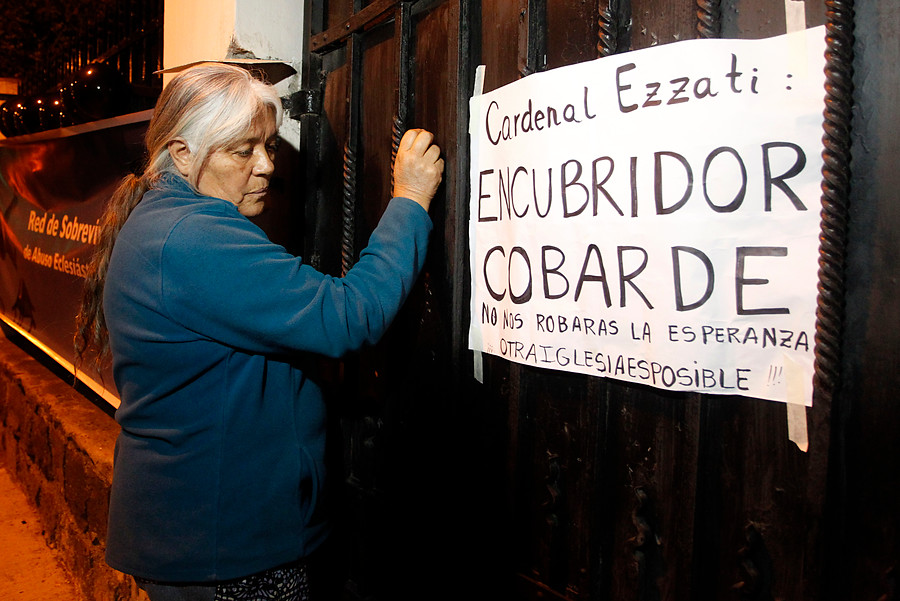 Red de Sobreviv
de Abuso Eclesiást
Cardenal Ezzati :
ENCUBRIDOR
COBARDE
NO NOS ROBARAS LA ESPERANZA
¡¡ OTRAIGLESIAESPOSIBLE !!!